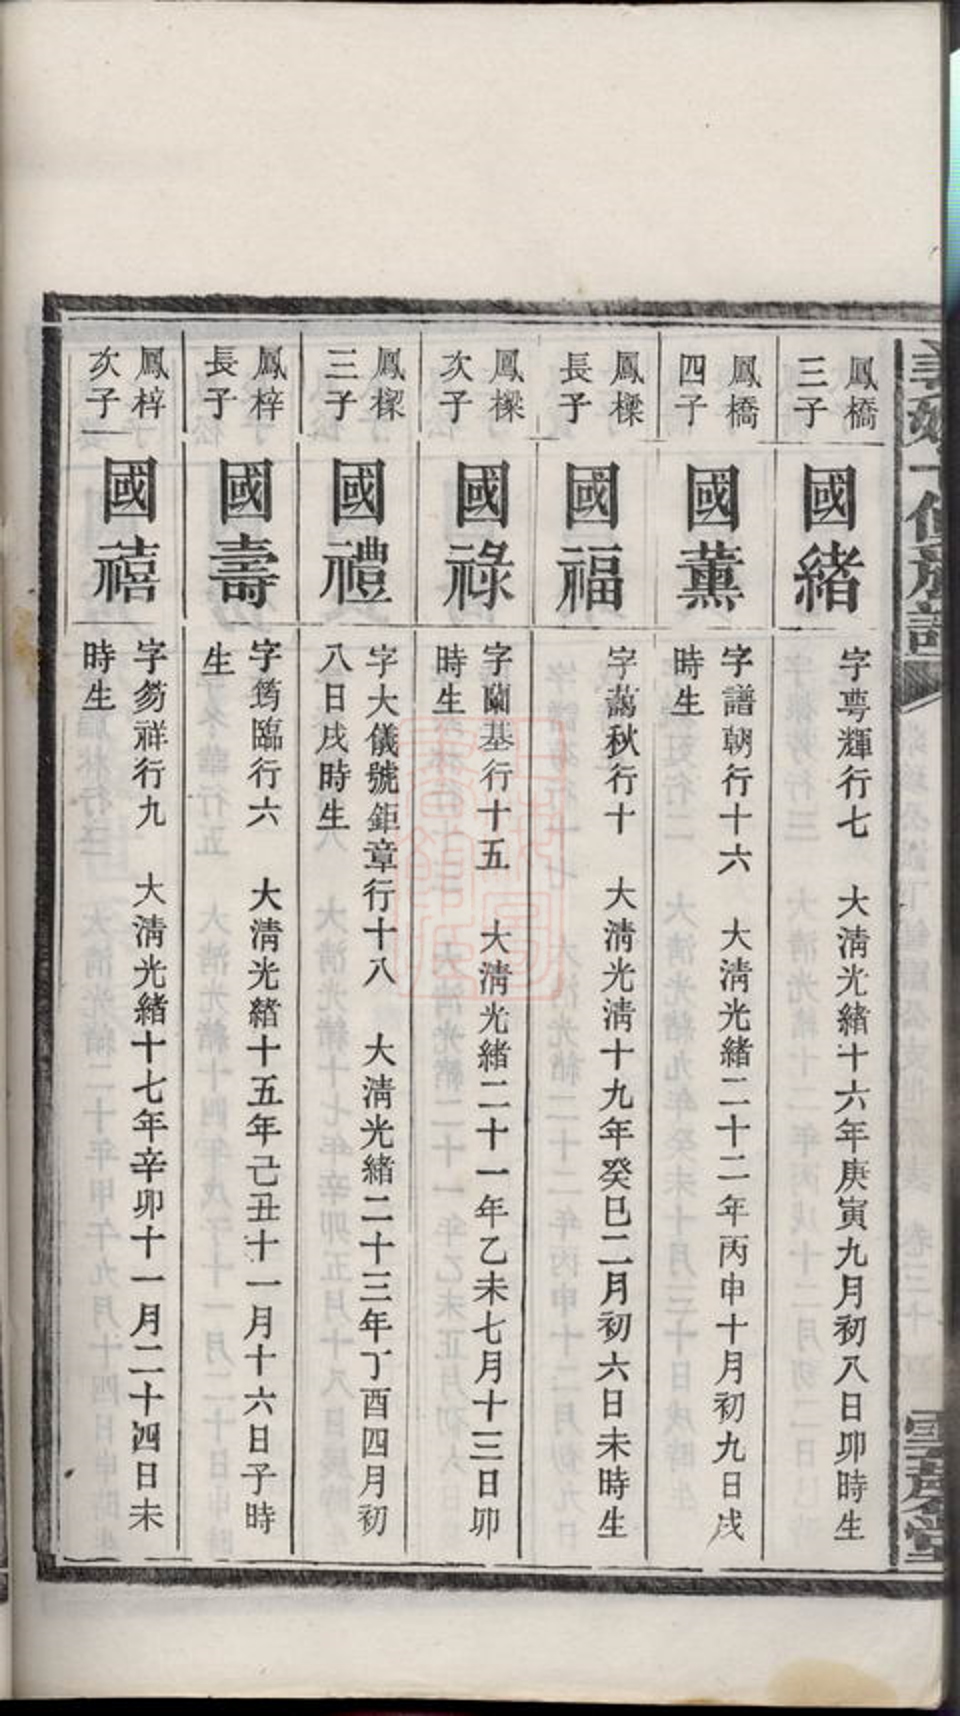 鳳橋
三子
國緒
字蕚輝行七　大淸光緒十六年庚寅九月初八日卯時生
鳳橋
四子
國薰
字譜朝行十六　大淸光緒二十二年丙申十月初九日戌
時生
鳳樑
長子
國福
字藹秋行十　大淸光淸十九年癸巳二月初六日未時生
鳳樑
次子
國祿
字蘭基行十五　大淸光緒二十一年乙未七月十三日卯
時生
鳳樑
三子
國禮
字大儀號鉅章行十八　大淸光緒二十三年丁酉四月初
八日戌時生
鳳梓
長子
國壽
字筠臨行六　大淸光緒十五年己丑十一月十六日子時
生
鳳梓
次子
國禧
字芴祥行九　大淸光緒十七年辛卯十一月二十四日未
時生